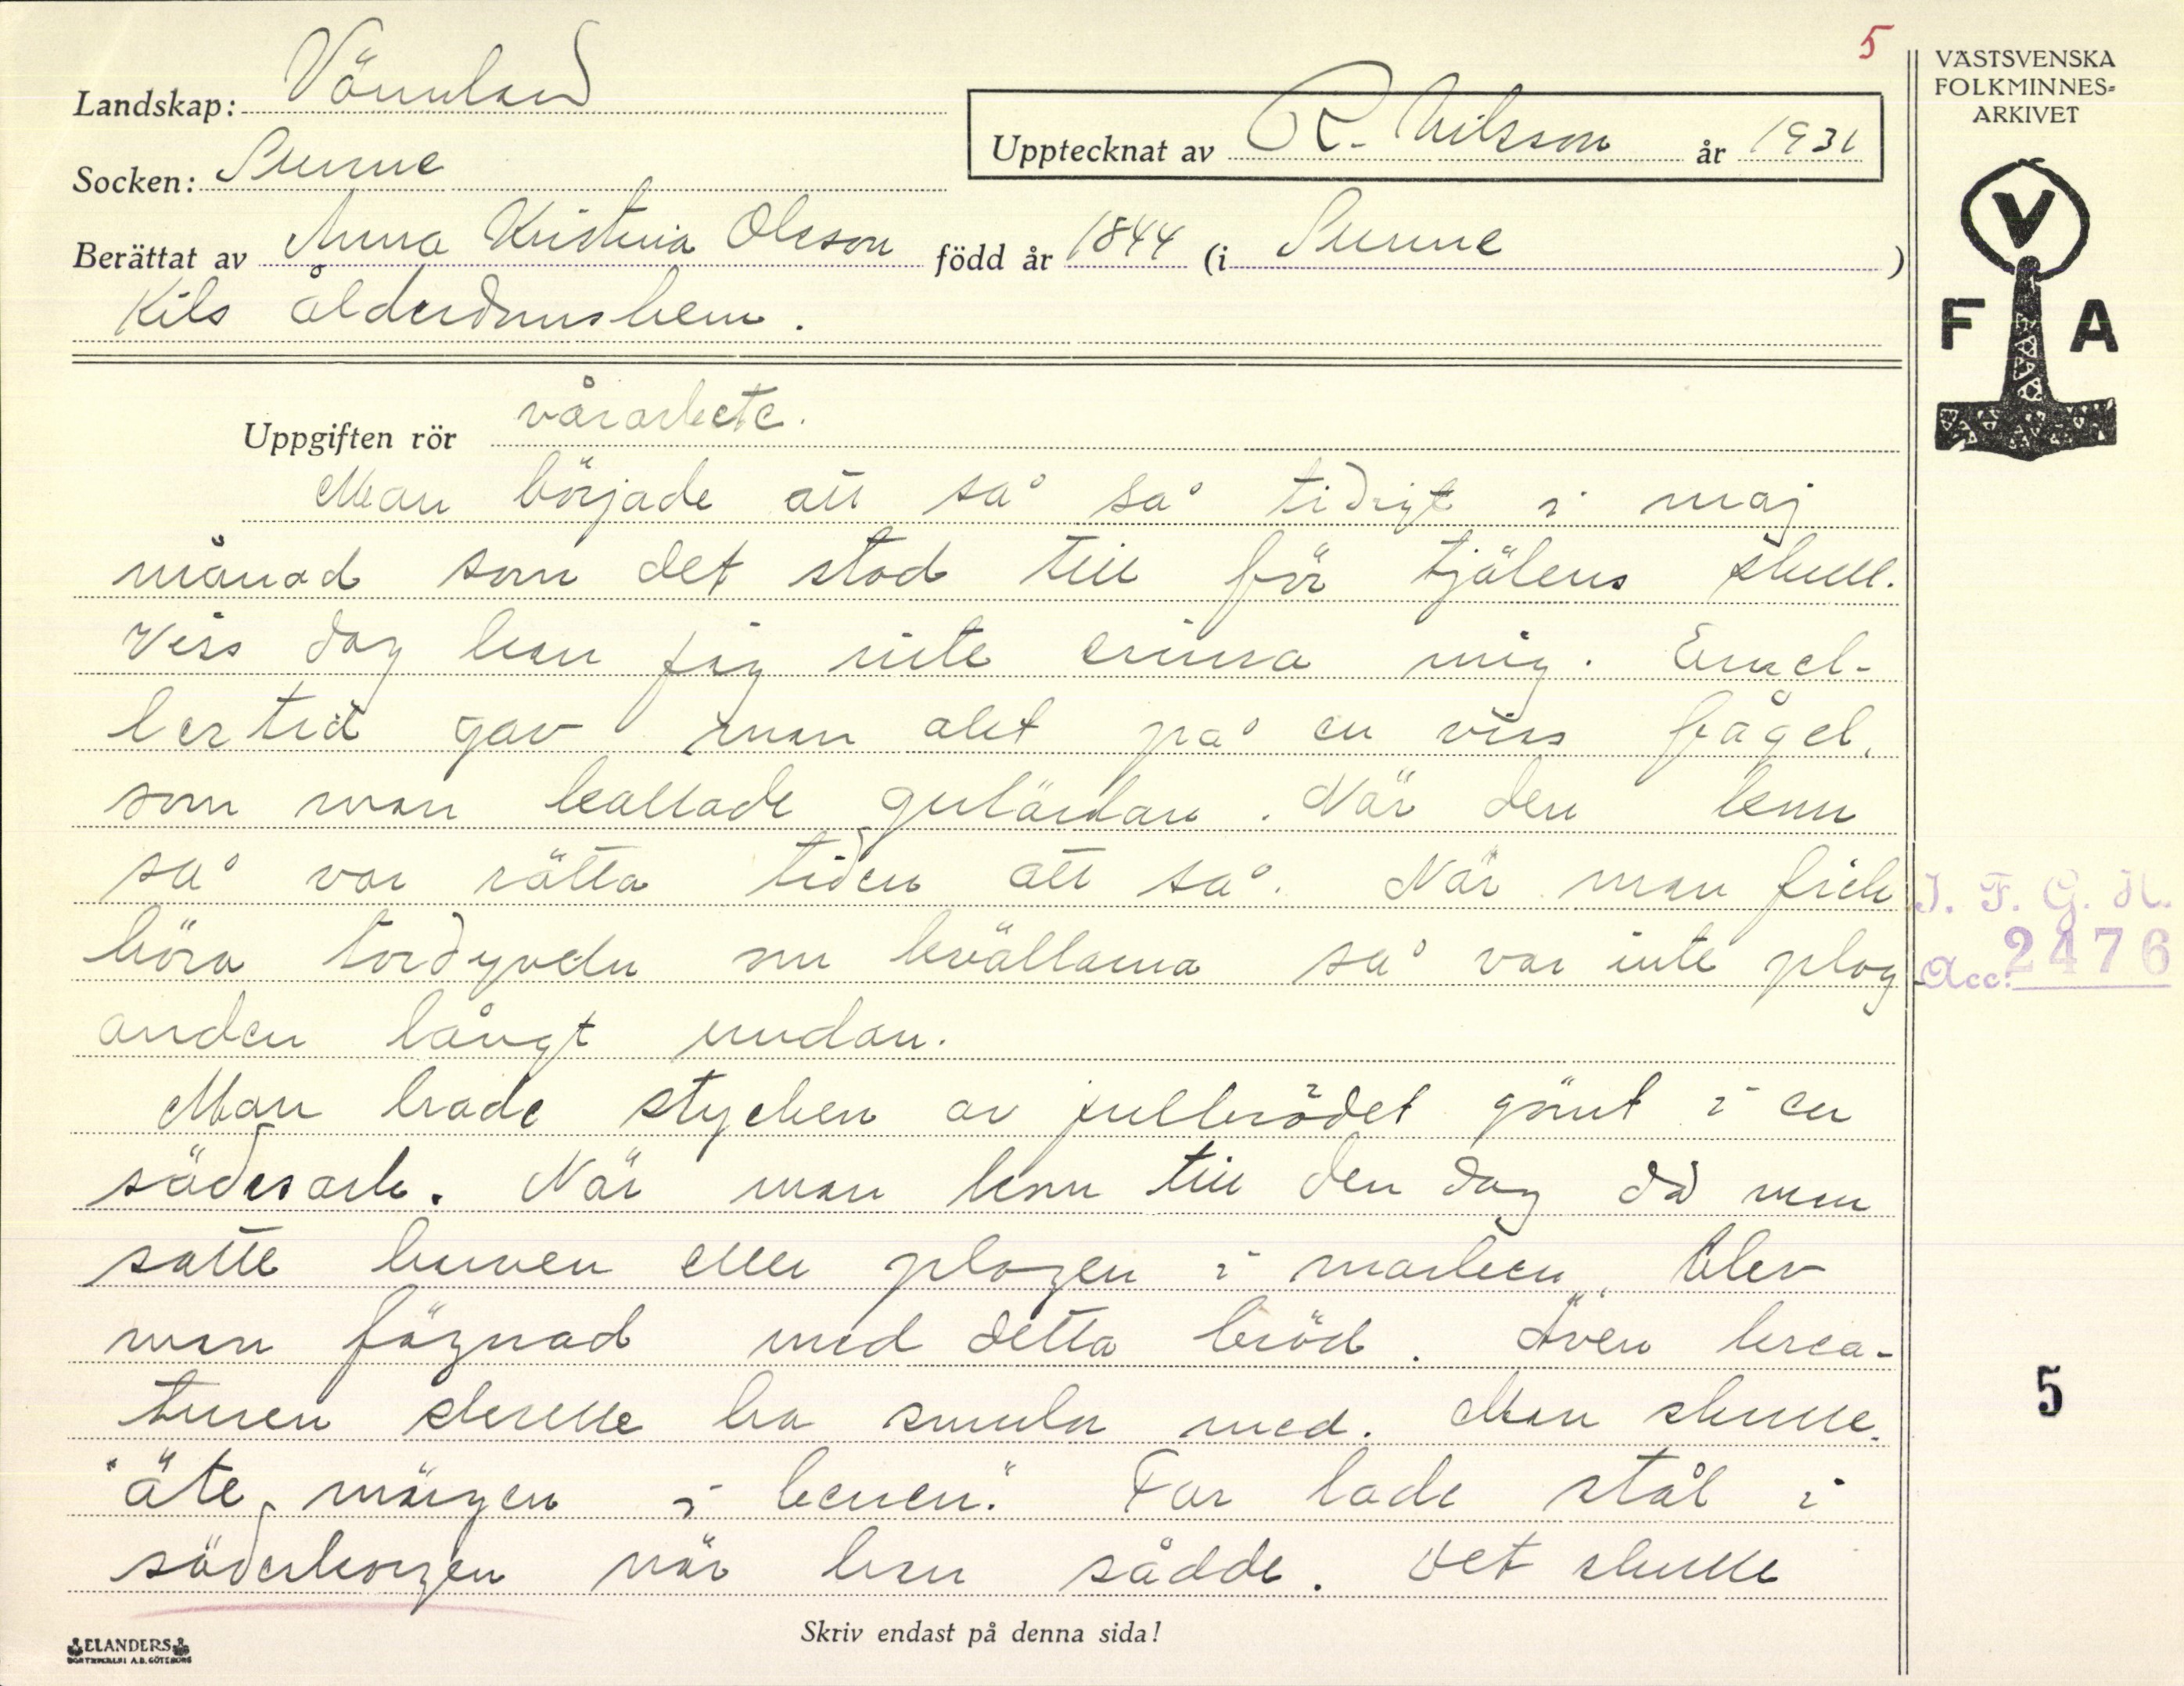 5
VÄSTSVENSKA
FOLKMINNES-
ARKIVET
Landskap: Värmland
Upptecknat av R. Nilsson år 1931
Socken: Sunne
Berättat av Anna Kristina Olsson född år 1844 (i Sunne)
Kils ålderdomshem.
V
F A
Uppgiften rör vårarbete.
Man började att så så tidigt i maj
månad som det stod till för tjälens skull.
Viss dag kan jag inte erinra mig. Emel-
lertid gav man akt på en viss fågel,
som man kallade gulärlan. När den kom
så var rätta tiden att så. När man fick
höra tordyveln om kvällarna så var inte plog-
anden långt undan.
Man hade stycken av julbrödet gömt i en
sädesark. När man kom till den dag då man
satte harven eller plogen i marken blev
man fägnad med detta bröd. Även krea-
turen skulle ha smula med. Man skulle
"äte märgen i benen." Far lade stål i
säderkorgen när han sådde. Det skulle
J. F. G. H.
Acc: 2476
5
Skriv endast på denna sida!
ELANDERS
BOKTRYCKERI A.B. GÖTEBORG